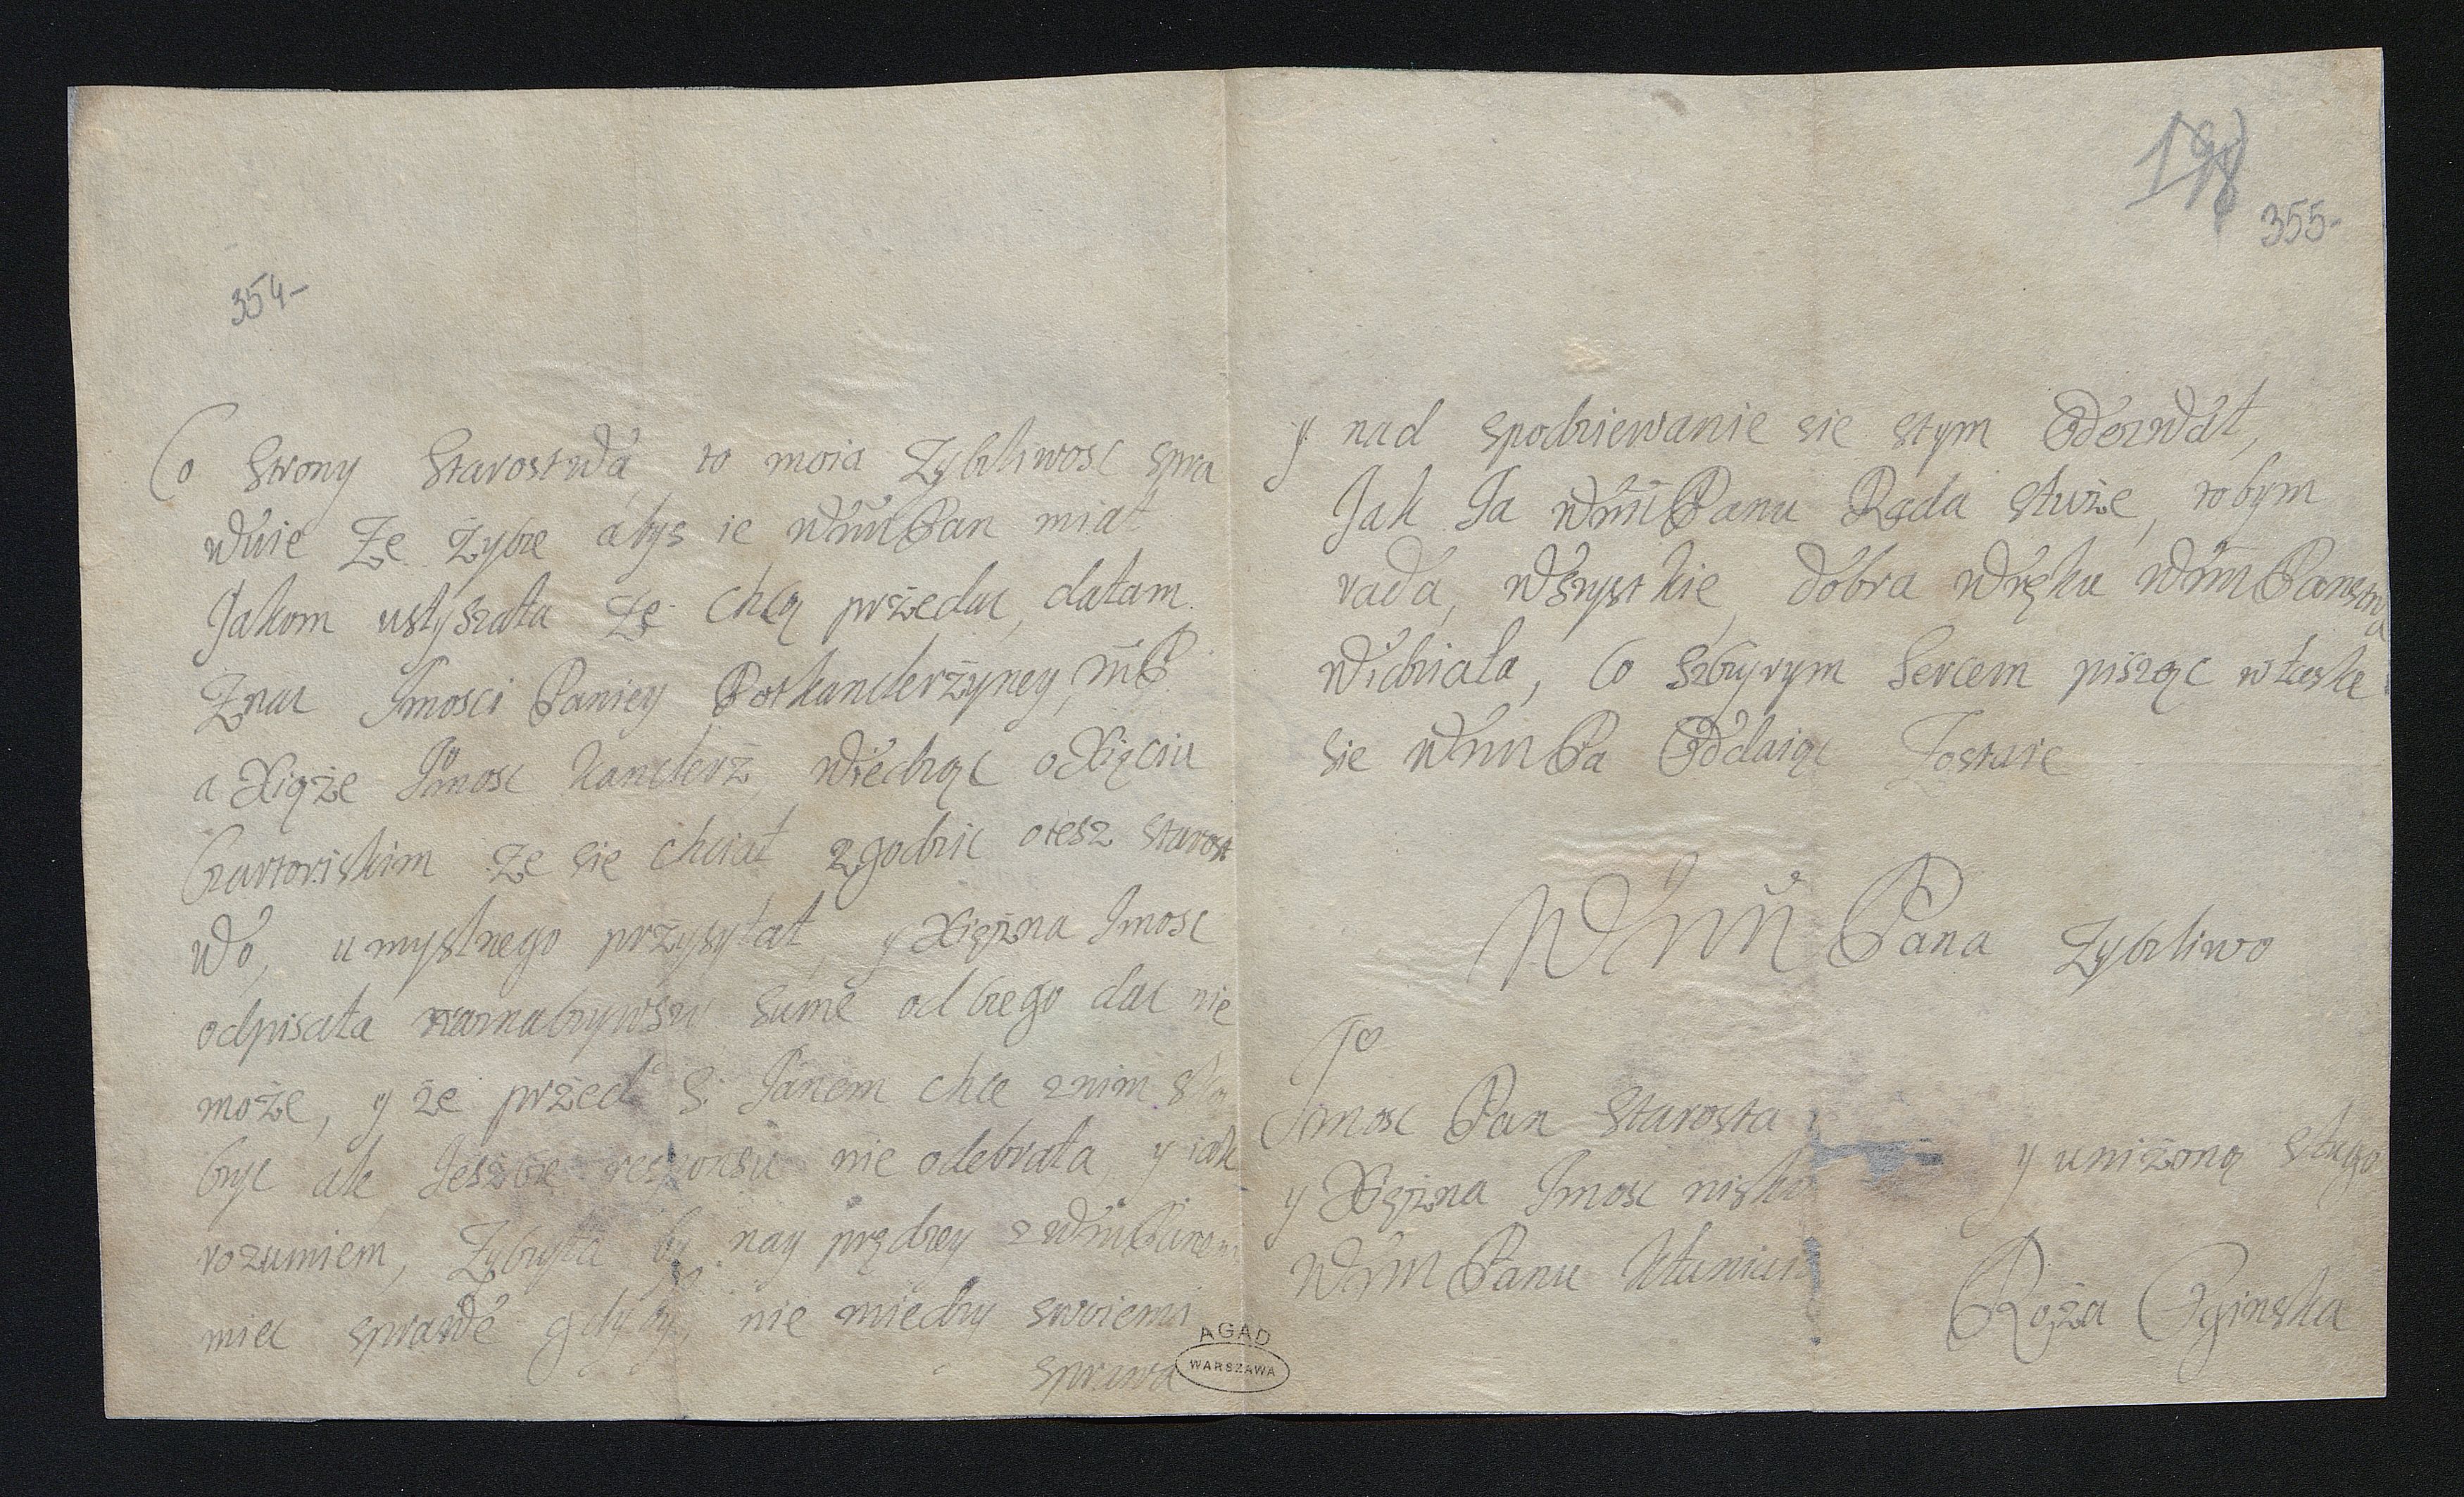 354-
Co strony Starostwa to moia Zycżliwosc spra
wuie Że życże abys ie WMM Pan miał
Jakom usłyszała Że chcą przedac, dałam
Znac Jmosci Paniey Potkanclerżyney, M P
a Xiąże Jmosc Kanclerż, wiedząc o Xięciu
Czartoriskim że sie chciał zgodzic otesz starost
wo, umyslnego przysyłał, y Xiężna Jmosc
odpisała sumę od czego dac nie
może, y że przed S. Janem chce znim
byc ale Jeszcże responsu nie odebrała, y iak
rozumiem, Zycżyła by nay prędzey z WMPanem
miec sprawę gdyby, nie miedzy swoiemi
sprawa
AGAD
WARSZAWA
198
355-
y nad spodziewanie sie stym Odezwał,
Jak Ja WMM Panu Rada służe, to bym
rada, wszystkie dobra w ręku WMM Panstwa
widziała, Co szczyrym sercem pisząc w łaske
sie WMM Pa Oddaiąc Zostaie
WMM Pana Zycżliwo
Jo
Jmosc Pan Starosta
y Xiężna Jmosc nisko
WMM Panu Kłaniaią
y uniżoną sługo
Roża Oginska